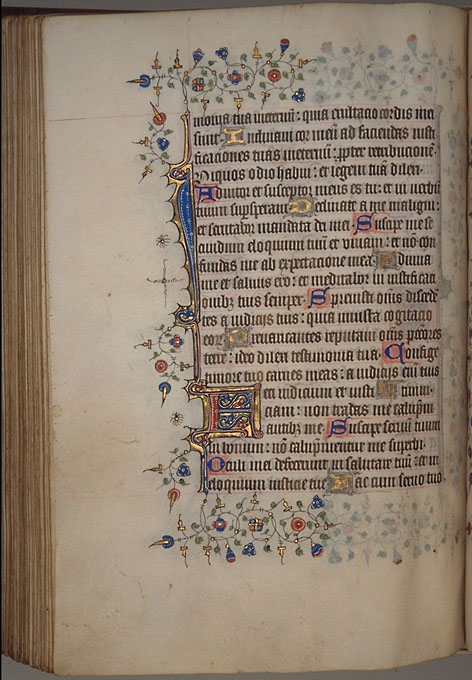 monia tua ineternũ: quia exultacio cordis mei
sunt. Inclinaui cor meũ ad faciendas iusti
ficaciones tuas ineternũ: ꝓpter retribucionẽ.
Iniquos odio habui: et legem tuã dilexi.
Adiutor et susceptor meus es tu: et in uerbũ
tuum supsperaui. Declinate a me maligni:
et scrutabor mandata dei mei. Suscipe me se
cundum eloquium tuũ et uiuam: et nõ con
fundas me ab expectacione mea. Adiuua
me et saluus ero: et meditabor in iustificaci
onibꝫ tuis semper. Spreuisti om̃s disceden
tes a iudicijs tuis: quia iniusta cogitacio
eoꝝ. Preuaricantes reputaui om̃s p̃ctores
terre: ideo dilexi testimonia tua. Confige
timore tuo carnes meas: a iudicijs eni tuis
Feci iudicium et iusti timui.
ciam: non tradas me calupni
antibꝫ me. Suscipe seruũ tuum
in bonum: nõ calupnientur me superbi.
Oculi mei defecerunt in salutare tuũ: et in
eloquium iusticie tue. Fac cum seruo tuo